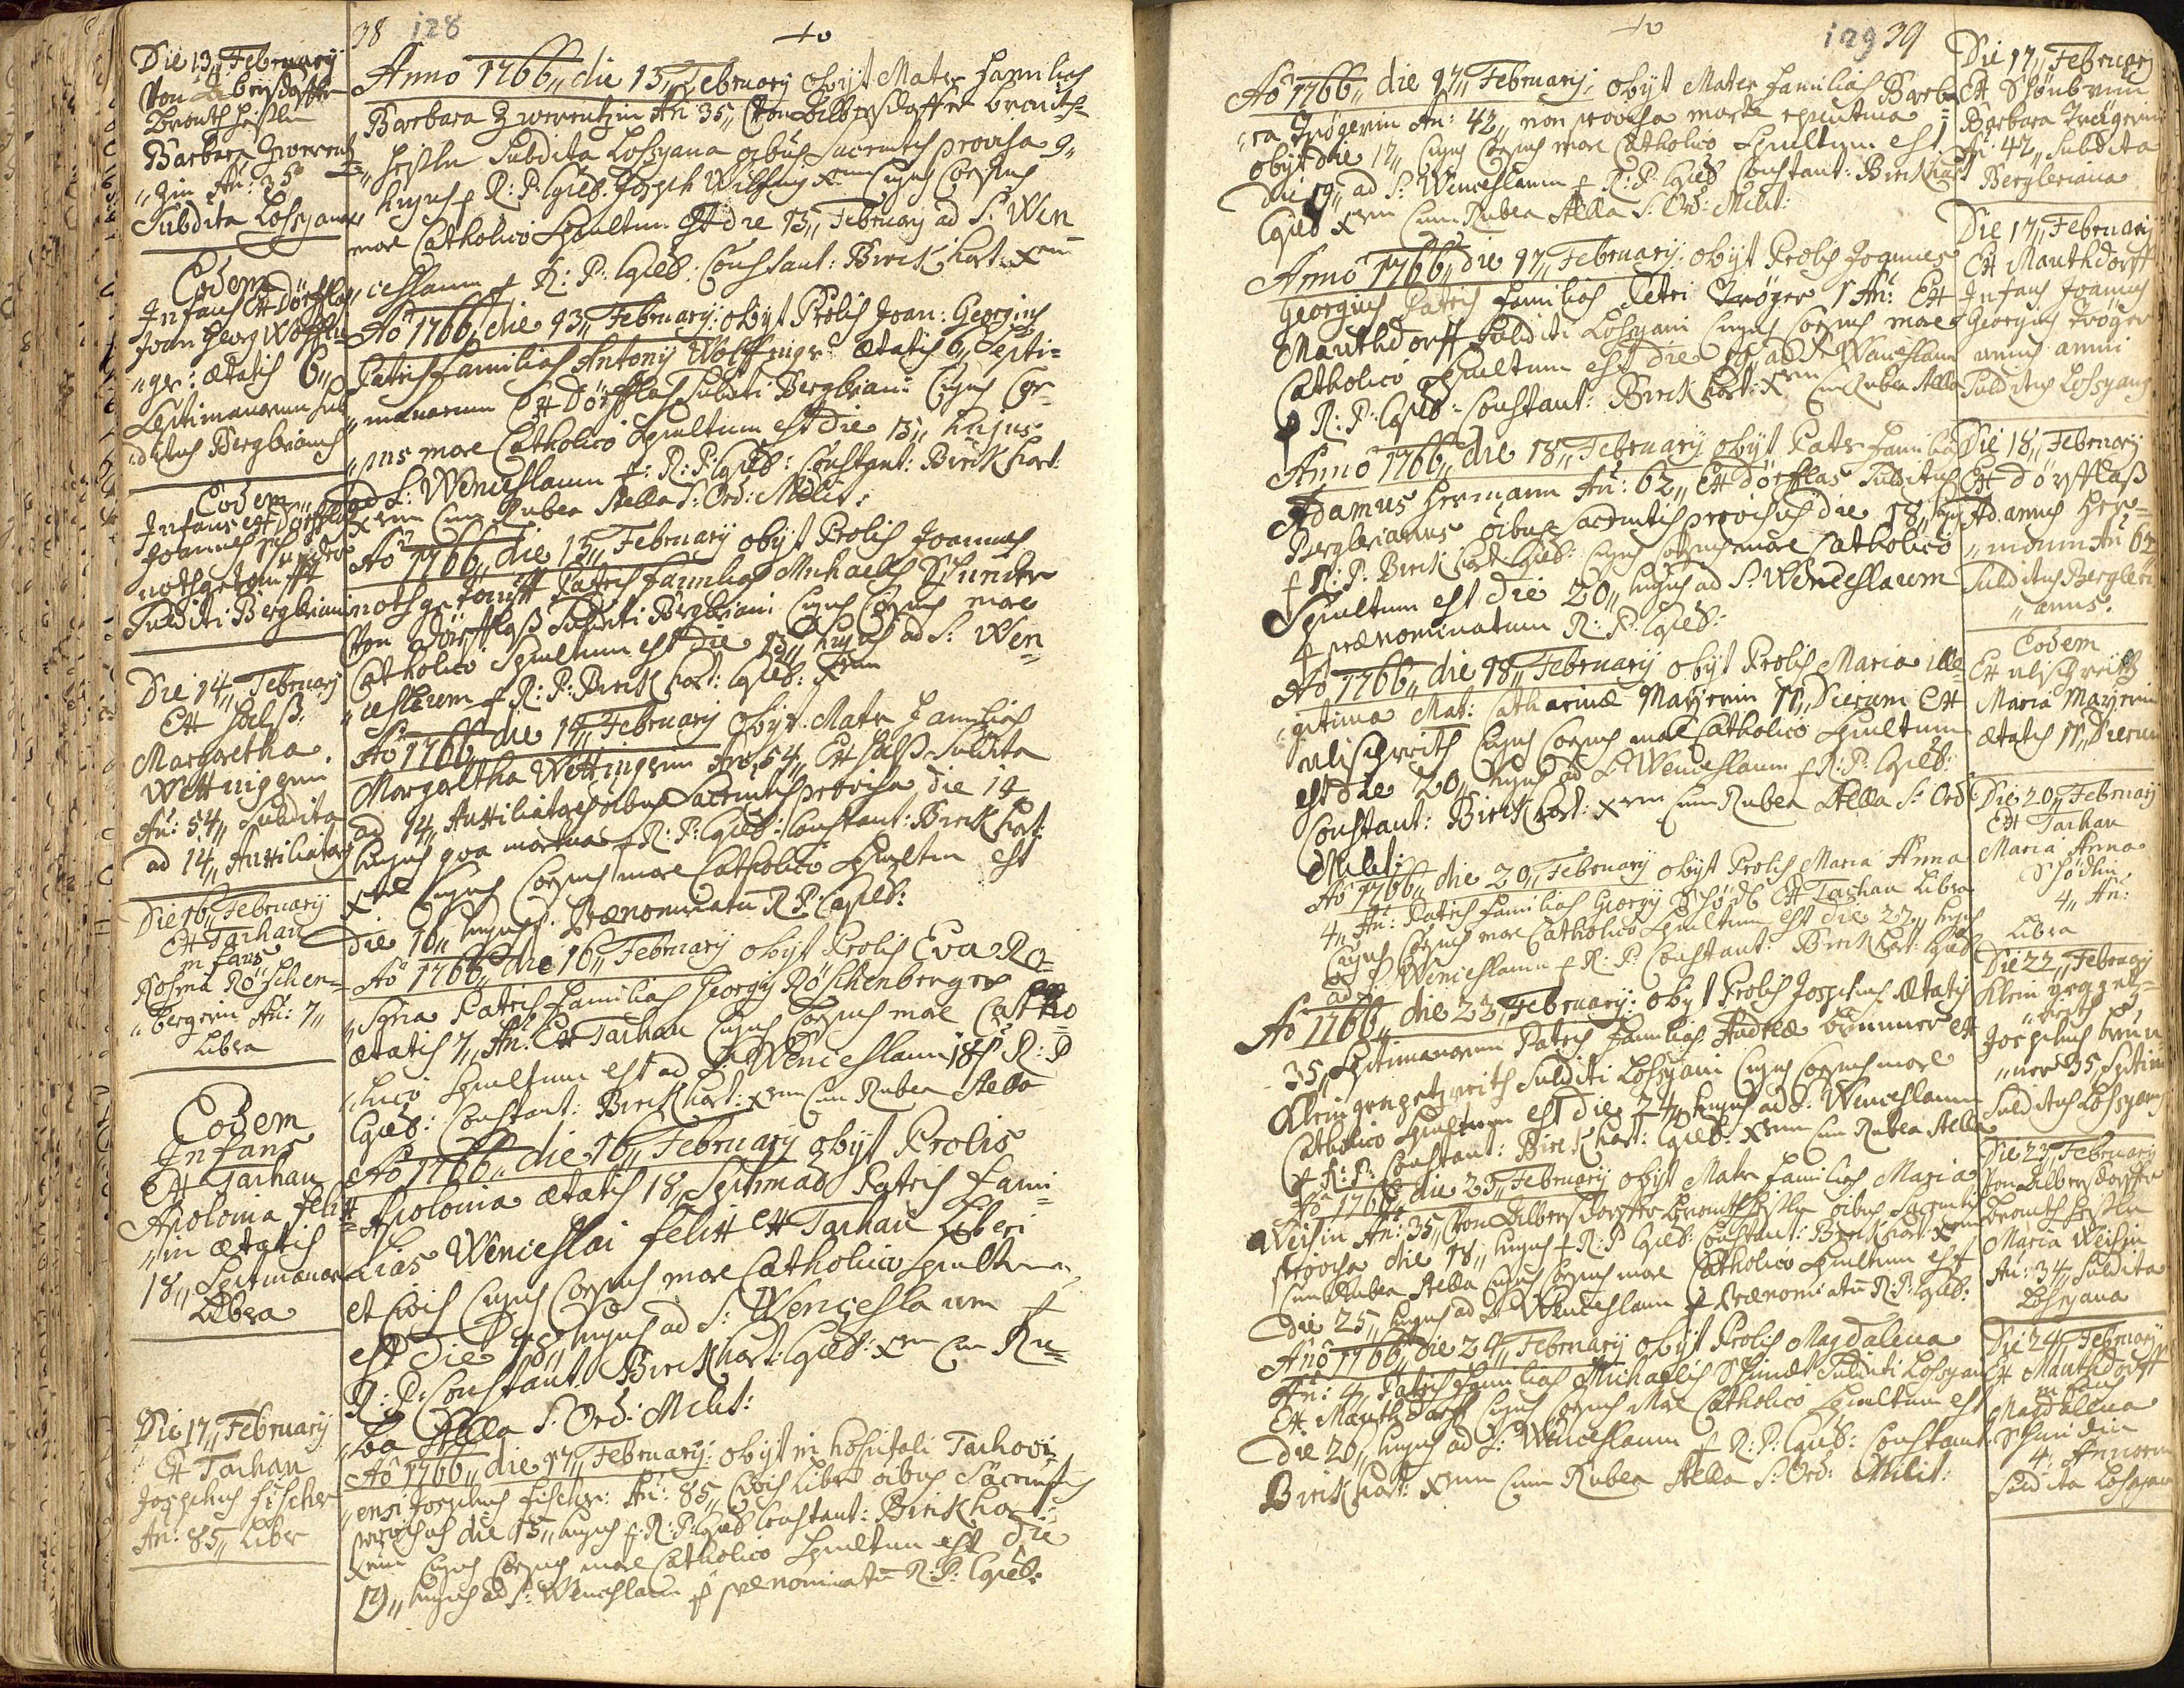 38 128
Die 13,, February
Von
Barbara Zwerentz
,,gin An: 35
Subdita Losyana
Eodem
Infans Ex Dörfflas
Joan Georg Wolffin
,,ger: ætatis 6,,
Septimanarum Sub
ditus Bergleriany
Eodem
Infans ex Dörfflas
Joannes Schunder
nothgetaufft
Subditi Bergleriani
Die 14,, February
Ex Halß
Margaretha
Wettingerin
An: 54,, Subdita
ad 14,, Auxiliatores
Die 16,, February
Ex Tachau
infans
Rosina Röschen=
,,bergerin An: 7,,
Libra
Eodem
Infans
Ex Tachau
Apolonia Felix
,,in ætatis
18,, Septimanar
Libra
Die 17,, February
Ex Tachau
Josephus Fischer
An: 85,, Liber
Anno 1766,, die 13,, February obyt Mater Familias
Barbara Zwerentzin An 35,, Von Albersdorffer brandt=
,,heisln Subdita Losyana oibus Sacrmtis provisa 9,,
hujus p R: P: Cyrill: Joseph xrum Cujus Corpus
more Catholico Sepultum Est die 15,, February ad S: Wen
,,ceslaum p R: P: Cyrill: Constant: Birckhart: xrum
Ao 1766,, die 13,, February: obyt Prolis Joan: Georgius
Patris Familias Antony Wolffinger Ætatis 6,, Septi=
,,manarum Ex Dörfflas Subditi Bergleriani Cujus Cor=
,,pus more Catholico Sepultum est die 15,, hujus
ad S: Wenceslaum p: R: P: Cyrill: Constant: Birckhart:
xrum Cum Rubea Stella S: Ord: Milit:
Ao 1766,, die 13,, February obyt Prolis Joannes
nothgetaufft Patris Familias Michaelis Schunder
Von Dörfflaß Subditi Bergleriani Cujus Corpus more
Catholico Sepultum est die 15,, hujus ad S: Wen=
,,ceslaum p R: P: Birckhart: Cyrill: xrum
Ao 1766,, die 14,, February obyt Mater Familias
Margaretha Wettingerin An: 54,, Ex Halß Subdita
ad 14,, Auxiliatores oibus Sacrmtis provisa die 14
hujus qua mortua p R: P: Cyrill: Constant: Birckhart:
Cujus Corpus more Catholico Sepultum est
Die 16,, hujus p. Prænominatu R: P: Cyrill:
Ao 1766,, die 16,, February obyt Prolis Eva Ro=
,,sina Patris Familias Georgy Röschenberger
ætatis 7,, An: Ex Tachau Cujus Corpus more Catho
,,lico Sepultum est ad S: Wenceslaum 18 p R: P
Cyrill: Constant: Birckhart: xrum Cum Rubea Stella
Ao 1766,, die 16,, February obyt Prolis
Apolonia ætatis 18,, Septimad Patris Fami=
,,lias Wenceslai Felix Ex Tachau Liberi
et Civis Cujus Corpus more Catholico Sepultum
est Die 18,, hujus ad S: Wenceslaum p
R: P: Constant: Birckhart: Cyrill: xrum Cum Ru=
,,bea Stella S: Ord: Milit:
Ao 1766,, die 17,, February: obyt in hospitali Tachovi=
,,ensi Josephus Fischer: An: 85,, Civis Liber oibus Sacrmtis
provisus die 15,, hujus p: R: P: Cyrill Constant: Birckhart:
xrum Cujus Corpus more Catholico Sepultum est Die
19,, hujus ad S: Wenceslaum p prænominatu R: P: Cyrill:
129 39
Ao 1766,, die 17,, February: obyt Mater Familias Barba
,,ra Trögerin An: 42,, non provisa morte repentina
obyt die 17,, Cujus Corpus more Catholico Sepultum est
Die 19,, ad S: Wenceslaum p R: P: Cyrill Constant: Birckhart
Cyrill xrum Cum Rubea Stella S: Ord: Milit:
Anno 1766,, die 17,, February: obyt Prolis Joannes
Georgius Patris Familias Petri Tröger 1 An: Ex
Mauthdorff Subditi Losyani Cujus Corpus more
Catholico Sepultum est Die 19 ad S: Wenceslaum
p R: P: Cyrill: Constant: Birckhart: xrum Cum Rubea Stella
Anno 1766,, die 18,, February obyt Pater Familias
Adamus Hermann An: 62,, Ex Dörfflas Subditus
Berglerianus oibus Sacrmtis provisus die 18,, hujus
p R: P: Birckhart Cyrill: Cujus Corpus more Catholico
Sepultum est Die 20,, hujus ad S: Wenceslaum
p prænominatum R: P: Cyrill:
Ao 1766,, die 18,, February obyt Prolis Maria ille=
,,gitima Mat: Catharinæ Mayerin 11,, Dierum Ex
Cujus Corpus more Catholico Sepultum
est die 20,, hujus ad S: Wenceslaum p R: P: Cyrill:
Constant: Birckhart: xrum Cum Rubea Stella S: Ord:
Milit:
Ao 1766,, die 20,, February obyt Prolis Maria Anna
4,, An: Patris Familias Georgy Schödl Ex Tachau Libra
Cujus Corpus more Catholico Sepultum est die 22,, hujus
ad S: Wenceslaum p R: P: Constant: Birckhart: Cyrill
Ao 1766,, die 22,, February: obyt Prolis Josephus Ætatis
35,, Septimanarum Patris Familias Andreæ brunner Ex
Subditi Losyani Cujus Corpus more
Catholico Sepultum est Die 24,, hujus ad S: Wenceslaum
p R: P: Constant: Birckhart: Cyrill: xrum Cum Rubea Stella
Ao 1766,, die 23,, February obyt Mater Familias Maria
Weisin An: 35,, Von Albersdorffer brandtheisln oibus Sacrmtis
provisa die 18,, hujus p R: P Cyrill: Constant: Birckhart: xrum
Cum Rubea Stella Cujus Corpus more Catholico Sepultum est
Die 25,, hujus ad S: Wenceslaum p Prænominatu R: P: Cyrill:
Ano 1766,, Die 24,, February obyt Prolis Magdalena
An: 4,, Patris Familias Michaelis Subditi Losyani
Ex Mauthdorff Cujus Corpus More Catholico Sepultum est
Die 26,, hujus ad S: Wenceslaum p R: P: Cyrill: Constant:
Birckhart: xrum Cum Rubea Stella S: Ord: Milit:
Die 17,, February
Ex Schönbrunn
Barbara Trögerin
An: 42,, Subdita
Bergleriana
Die 17,, February
Ex Mauthdorff
Infans Joannes
Georgius Tröger
unius anni
Subditus Losyany
Die 18,, February
Ex Dörfflaß
Adamus Her=
,,mann An 62
Subditus Bergleri
,,anus.
Eodem
Maria Mayerin
ætatis 11,, Dierum
Die 20,, February
Ex Tachau
Maria Anna
Schödlin
4,, An:
Libra
Die 22,, February
Josephus brun
,,ner 35,, Septim
Subditus Losyany
Die 23,, February
Von Albersdorffer
brandtheisln
Maria Weisin
An: 34,, Subdita
Losyana
Die 24,, February
Ex Mauthdorff
infans
Magdalena
4: Annorum
Subdita Losyana